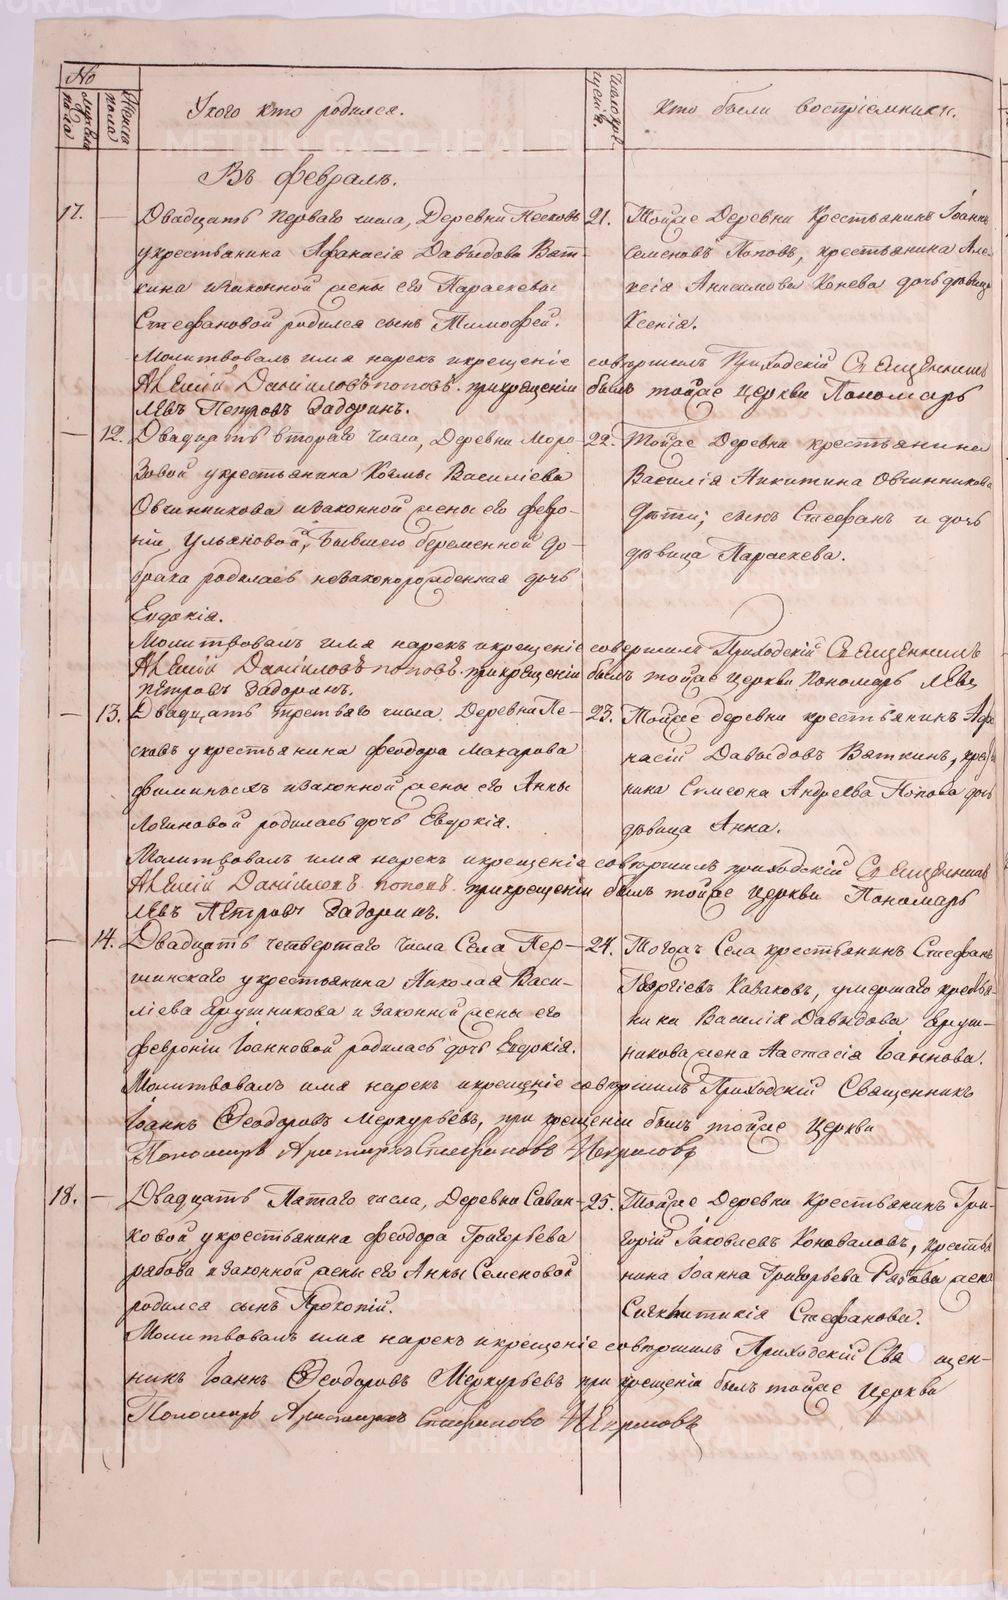 №
Мужеска пола
Женска пола
У кого кто родился.
Число крещенія.
Кто были воспріемники.
Въ февралѣ.
17. — Двадцать перваго числа, Деревни Песковъ 21. Тойже Деревни Крестьянинъ Іоаннъ
у крестьянина Афанасія Давыдова Вят- Семеновъ Поповъ, крестьянина Але-
кина и законной жены его Параскевы ксія Анисимова Конева дочь дѣвица
Стефановой родился сынъ Тимофей. Ксенія.
Молитвовалъ имя нарекъ и крещеніе совершилъ Приходскій Священникъ
Даніиловъ поповъ. при крещеніи былъ тойже церкви Пономарь
Левъ Петровъ Задоринъ.
— 12. Двадцать втораго числа, Деревни Моро- 22. Тойже Деревни крестьянина
зовой у крестьянина Космы Василіева Василія Никитина Овчинникова
Овчинникова и законной жены его февро- дѣти; сынъ Стефанъ и дочь
ніи Ульяновой, бывшею беременной до дѣвица Параскева.
брака родилась незаконорожденная дочь
Евдокія.
Молитвовалъ имя нарекъ и крещеніе совершилъ Приходскій Священникъ
Даніиловъ поповъ. при крещеніи былъ тойже церкви Пономарь Левъ
Петровъ Задоринъ.
— 13. Двадцать третьяго числа. Деревни Пе- 23. Тойже деревни крестьянинъ Афа
сковъ у крестьянина феодора Макарова насій Давыдовъ Вяткинъ,
и законной жены его Анны Симеона Андреева Попова дочь
Логиновой родилась дочь Евдокія. дѣвица Анна.
Молитвовалъ имя нарекъ и крещеніе совершилъ приходскій Священникъ
Даніиловъ поповъ. при крещеніи былъ тойже церкви Пономарь
Левъ Петровъ Задоринъ.
— 14. Двадцать четвертаго числа Села Пер- 24. Тогожъ Села крестьянинъ Стефанъ
шинскаго у крестьянина Николая Васи- Георгіевъ Казаковъ, умершаго крестья-
ліева Ярушникова и законной жены его нина Василія Давыдова Яруш-
февроніи Іоанновой родилась дочь Евдокія. никова жена Настасія Іоаннова.
Молитвовалъ имя нарекъ и крещеніе совершилъ Приходскій Священникъ
Іоаннъ Феодоровъ Меркурьевъ, при крещеніи былъ тойже Церкви
Пономарь Стефановъ Некрасовъ
18. — Двадцать Пятаго числа, Деревни Савин- 25. Тойже Деревни Крестьянинъ Гри-
ковой у крестьянина феодора Григорьева горій Іаковлевъ Коноваловъ, крестья
рябова и законной жены его Анны Семеновой нина Іоанна Григорьева Рябова жена
родился сынъ Прокопій. Сигклитикія Стефанова.
Молитвовалъ имя нарекъ и крещеніе совершилъ Приходскій Свя щен-
никъ Іоаннъ Феодоровъ Меркурьевъ при крещеніи былъ тойже Церкви
Пономарь Стефановъ Некрасовъ
METRIKI.GASO-URAL.RU